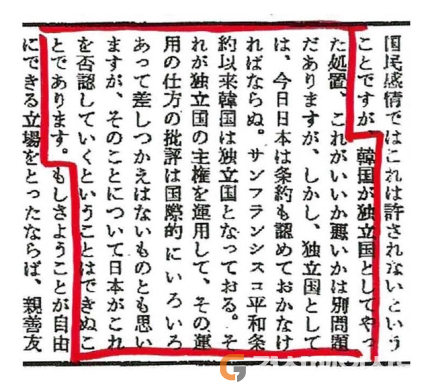 国民感情ではこれは許されないという
ことですが、韓国が独立国としてやつ
た処置、これがいいか悪いかは別問題
だありますが、しかし、独立国として
は、今日日本は条約も認めておかなけ
ればならぬ。サンフランシスコ平和条
約以来韓国は独立国となつておる。そ
れが独立国の主権を運用して、その運
用の仕方の批評は国際的にいろいろ
あつて差しつかえはないものとも思い
ますが、そのことについて日本がこれ
を否認していくということはできぬこ
とであります。もしさようことが自由
にできる立場をとつたならば、親善友